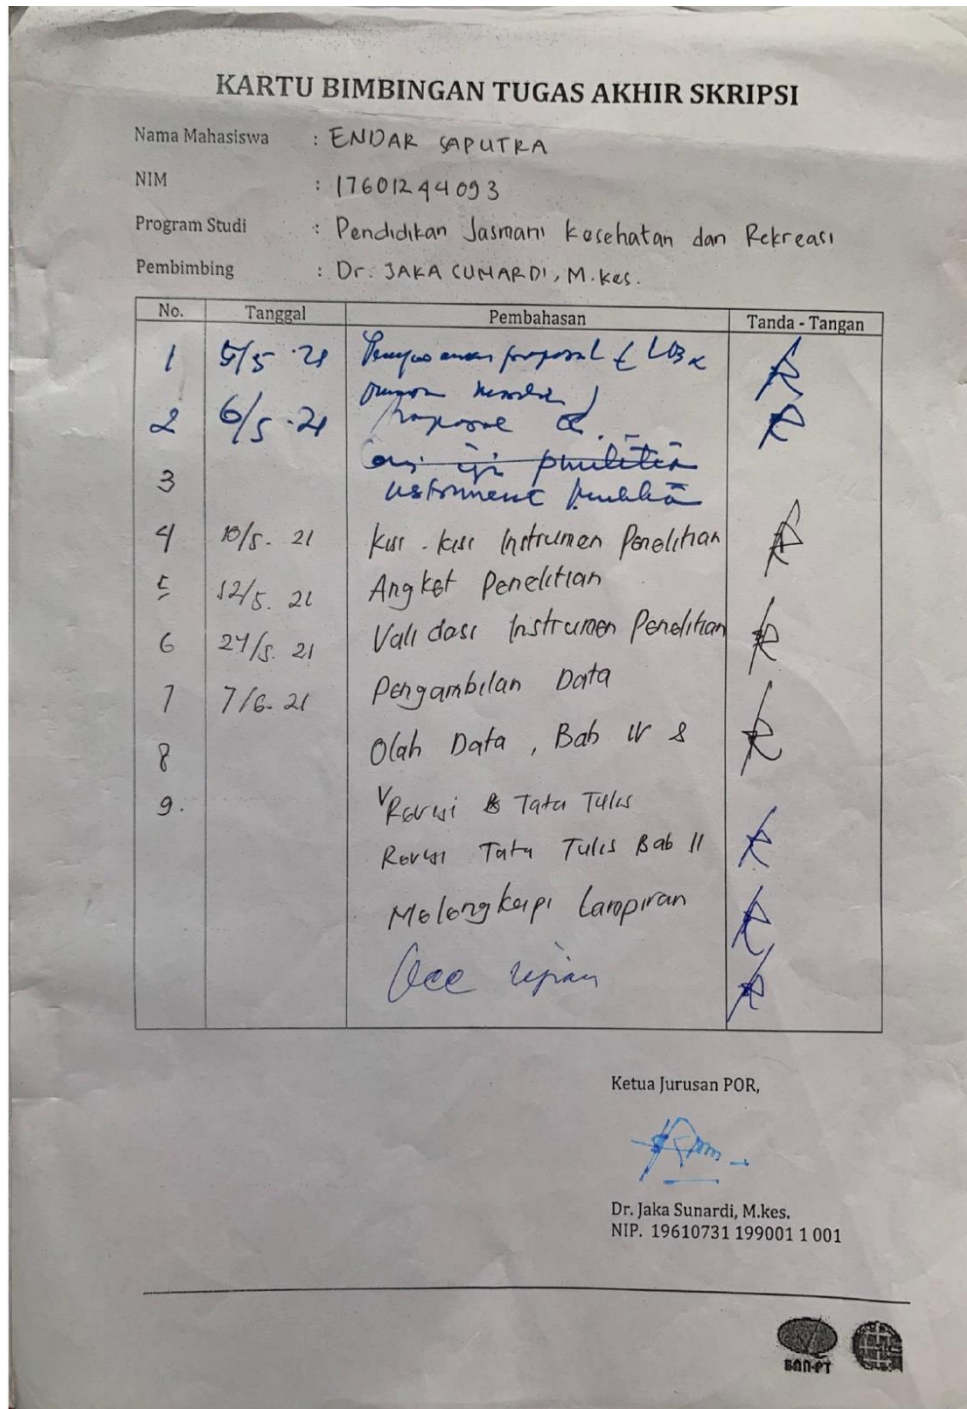 KARTU BIMBINGAN TUGAS AKHIR SKRIPSI
Nama Mahasiswa : ENDAR SAPUTRA
NIM : 17601244093
Program Studi : Pendidikan Jasmani Kesehatan dan Rekreasi
Pembimbing : Dr. JAKA SUNARDI, M.kes.
No. Tanggal Pembahasan Tanda - Tangan
1 5/5 . 21 proposal
2 6/5 . 21 proposal
3 penelitian
instrument penelitian
4 10/5 - 21 Kisi - kisi Instrumen Penelitian
5 12/5. 21 Angket Penelitian
6 24/5. 21 Validasi Instrumen Penelitian
7 7/6- 21 Pengambilan Data
8 Olah Data, Bab IV &
9. V Revisi Tata Tulis
Revisi Tata Tulis Bab II
Melengkapi Lampiran
Acc ujian
Ketua Jurusan POR,
Dr. Jaka Sunardi, M.kes.
NIP. 19610731 199001 1 001
BAN-PT